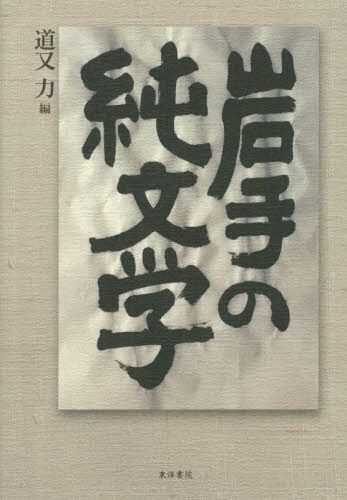 岩手の
純文学
道又 力 編
東洋書院